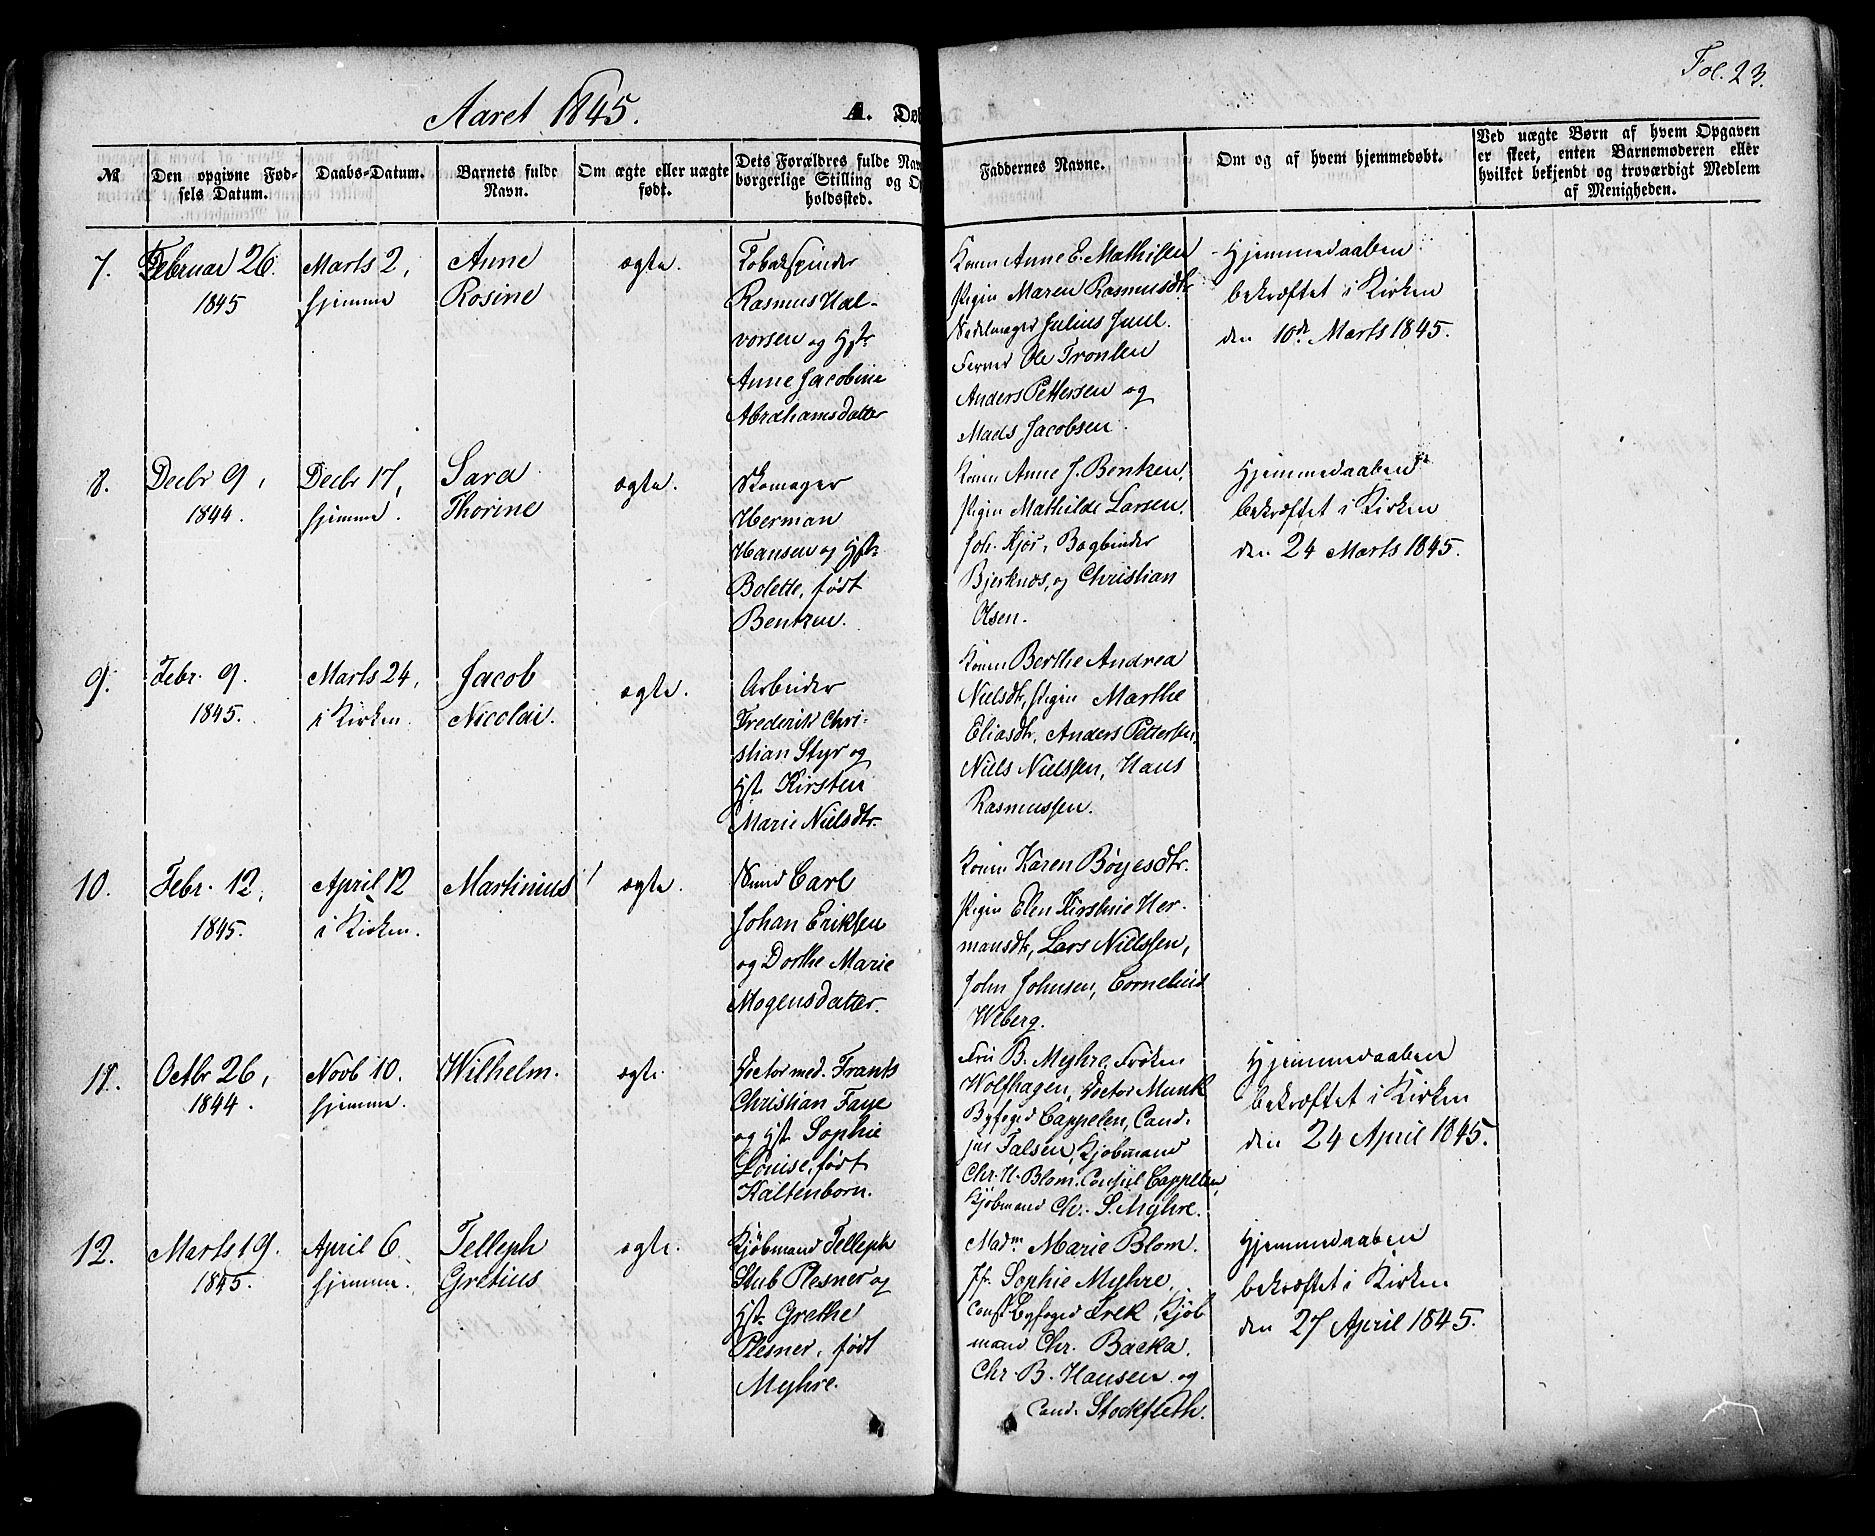 Fol. 23.
Aaret 1845.
A. Døb
№
Den opgivne Fød-
sels Datum.
Daabs-Datum.
Barnets fulde
Navn.
Om ægte eller uægte
født.
Dets Forældres fulde Nav
borgerlige Stilling og O
holdssted.
Faddernes Navne.
Om og af hvem hjemmedøbt.
Ved uægte Børn af hvem Opgaven
er skeet, enten Barnemoderen eller
hvilket bekjendt og troværdigt Medlem
af Menigheden.
7.
Februar 26.
1845
Marts 2,
hjemme
Anne
Rosine
ægte.
Tobakspinder
Rasmus Hal-
vorsen og Hst.
Anne Jacobine
Abrahamsdatter
Konen Anne E. Mathisen
Pigen Maren Rasmusdtr
Julius Juul.
Ole Tronsen
Anders Pettersen og
Mads Jacobsen.
Hjemmedaaben
bekræftet i Kirken
den 10de Marts 1845.
8.
Decbr 9,
1844.
Decbr 17,
hjemme.
Sara
Thorine
ægte.
Skomager
Herman
Hansen og Hst.
Bolette, født
Bentzen.
Konen Anne J. Bentzen,
Pigen Mathilde Larsen.
Joh. Kjør, Bogbinder
Bjerknæs, og Christian
Olsen.
Hjemmedaaben
bekræftet i Kirken
den 24 Marts 1845.
9.
Febr. 9.
1845.
Marts 24,
i Kirken.
Jacob
Nicolai.
ægte.
Arbeider
Frederik Chri-
stian Styr og
Hst. Kirsten
Marie Nielsdtr.
Konen Berthe Andrea
Nielsdtr, Pigen Marthe
Eliasdtr, Anders Pettersen,
Niels Nielssen, Hans
Rasmussen.
10.
Febr. 12,
1845.
April 12
i Kirken.
Martinius
ægte.
Svend Carl
Johan Eriksen
og Dorthe Marie
Mogensdatter.
Konen Karen Bøyesdtr.
Pigen Elen Kirstine Her-
mansdtr, Lars Nielssen,
John Johnsen, Cornelius
Weberg.
11.
Octbr 26,
1844.
Novb 10.
hjemme.
Wilhelm.
ægte.
Doctor med. Frants
Christian Faye
og Hst. Sophie
Louise, født
Kaltenborn.
Fru B. Myhre, Frøken
Wolfhagen, Doctor Munk
Byfoged Cappelen, Cand.
jur Falsen, Kjøbmand
Chr. H. Blom, Consul Cappelen,
Kjøbmand Chr. S. Myhre.
Hjemmedaaben
bekræftet i Kirken
den 24 April 1845.
12.
Marts 19.
1845.
April 6
hjemme.
Telleph
Gretius
ægte.
Kjøbmand Telleph
Stub Plesner og
Hst. Grethe
Plesner, født
Myhre.
Madm Marie Blom.
Jfr. Sophie Myhre,
Const Byfoged Trek, Kjøb
mand Chr. Backa.
Chr B. Hansen og
Cand. Stockfleth.
Hjemmedaaben
bekræftet i Kirken
den 27 April 1845.